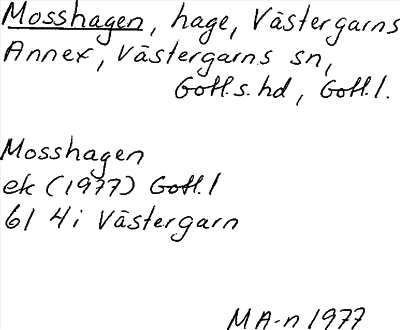 Mosshagen, hage, Västergarns
Annex, Västergarns sn,
Gotl.s.hd, Gotl.l.
Mosshagen
ek (1977) Gotl.l
6I 4i Västergarn
MA-n 1977